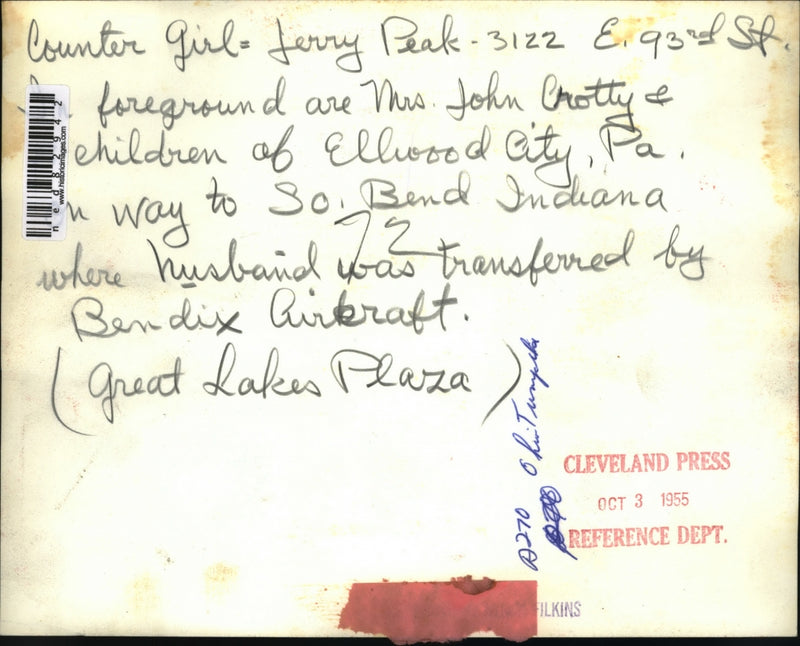 Counter Girl = Jerry Peak - 3122 E. 93rd St.
foreground are Mrs. John Crotty &
children of Ellwood City, Pa.
way to So. Bend Indiana
72
where husband was transferred by
Bendix Airkraft.
(Great Lakes Plaza)
ned82942
www.historicimages.com
A270 Ohio Turnpike
CLEVELAND PRESS
OCT 3 1955
REFERENCE DEPT.
FILKINS